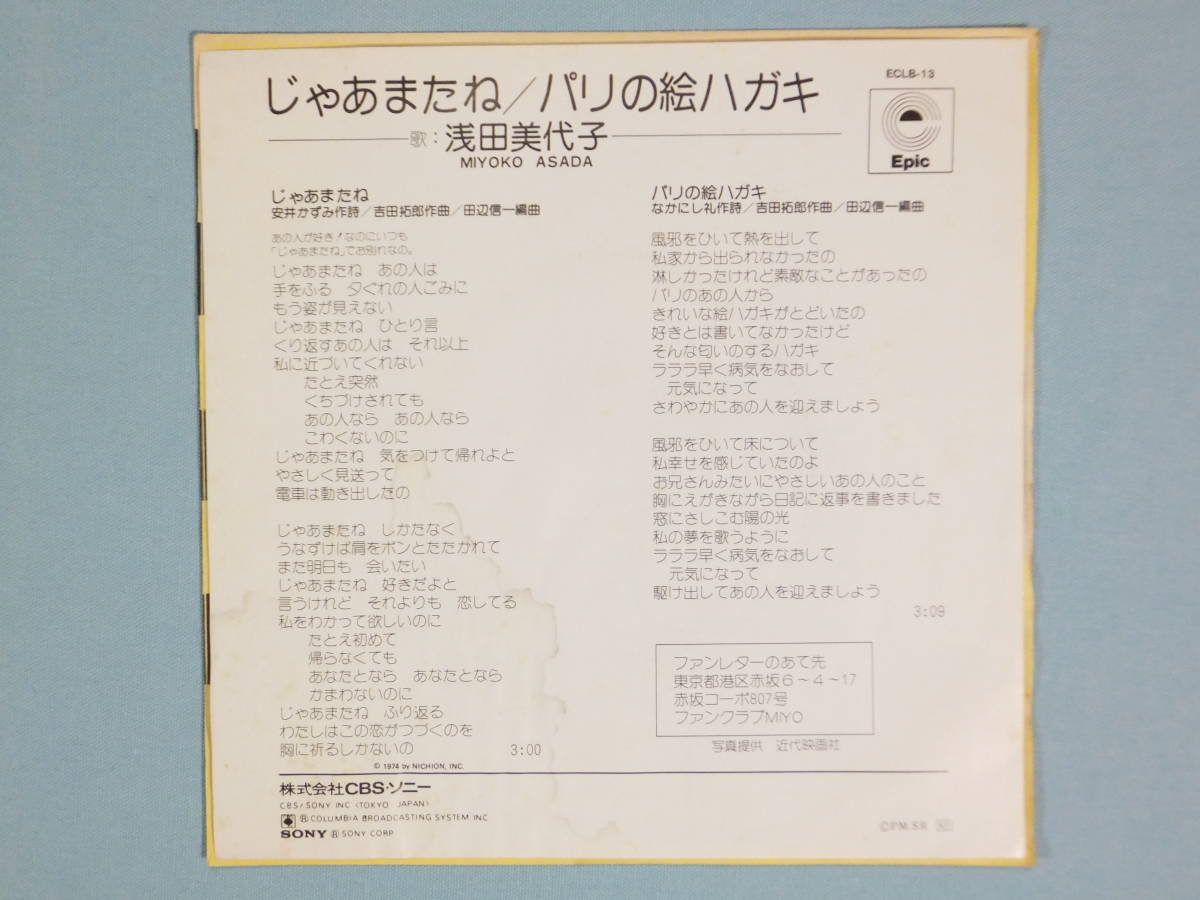 ECLB-13
じゃあまたね/パリの絵ハガキ
歌:浅田美代子
MIYOKO ASADA
Epic
じゃあまたね
安井かずみ作詩/吉田拓郎作曲/田辺信一編曲
あの人が好き!なのにいつも
「じゃあまたね」でお別れなの。
じゃあまたね あの人は
手をふる 夕ぐれの人ごみに
もう姿が見えない
じゃあまたね ひとり言
くり返すあの人は それ以上
私に近づいてくれない
たとえ突然
くちづけされても
あの人なら あの人なら
こわくないのに
じゃあまたね 気をつけて帰れよと
やさしく見送って
電車は動き出したの
じゃあまたね しかたなく
うなずけば肩をポンとたたかれて
また明日も 会いたい
じゃあまたね 好きだよと
言うけれど それよりも 恋してる
私をわかって欲しいのに
たとえ初めて
帰らなくても
あなたとなら あなたとなら
かまわないのに
じゃあまたね ふり返る
わたしはこの恋がつづくのを
胸に祈るしかないの 3:00
© 1974 by NICHION, INC.
パリの絵ハガキ
なかにし礼作詩/吉田拓郎作曲/田辺信一編曲
風邪をひいて熱を出して
私家から出られなかったの
淋しかったけれど素敵なことがあったの
パリのあの人から
きれいな絵ハガキがとどいたの
好きとは書いてなかったけど
そんな匂いのするハガキ
ラララ早く病気をなおして
元気になって
さわやかにあの人を迎えましよう
風邪をひいて床について
私幸せを感じていたのよ
お兄さんみたいにやさしいあの人のこと
胸にえがきながら日記に返事を書きました
窓にさしこむ陽の光
私の夢を歌うように
ラララ早く病気をなおして
元気になって
駆け出してあの人を迎えましよう
3:09
ファンレターのあて先
東京都港区赤坂6〜4〜17
赤坂コーポ807号
ファンクラブMIYO
写真提供 近代映画社
株式会社CBS・ソニー
CBS/SONY INC (TOKYO JAPAN)
® COLUMBIA BROADCASTING SYSTEM INC
SONY ® SONY CORP
©PM.SR